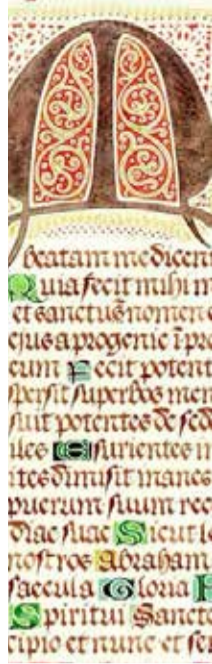 M
beatam me dicen
Quia fecit mihi m
et sanctū nomen e
ejus a progenie ī pro
eum Fecit potent
spersit superbos men
suit potentes de sed
iles Esurientes im
ites dimisit inanes
puerum suum rec
diae suae Sicut lo
nostros Abraham
saecula Gloria P
Spiritui Sancto
cipio et nunc et sem